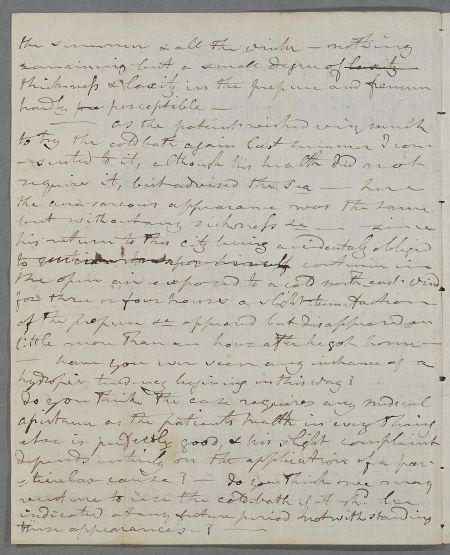 the summer & all the winter – nothing
remaining but a small degree of laxity
thickness & laxity in the prepuce and frenum
hardly perceptible –
— as the patient wished very much
to try the cold bath again last summer I con
– sented to it, although his health did not
require it, but advised the sea – here
the anasarcous appearance was the same
but without any sickness &c — since
his return to this city being accidentally obliged
to continue in
the open air exposed to a cold north east wind
for three or four hours a slight tumefaction
of the prepuce appeared but disappeared in
little more than an hour after he got home –
– have you ever seen any instance of a
hydropic tendency begining in this way?
Do you think the case requires any medical
assistance as the patients health in every thing
else is perfectly good, & his slight complaint
depends entirely on the application of a par
– ticular cause? – do you think we may
venture to use the cold bath if it shd. be
indicated at any future period notwithstanding
these appearances – ?